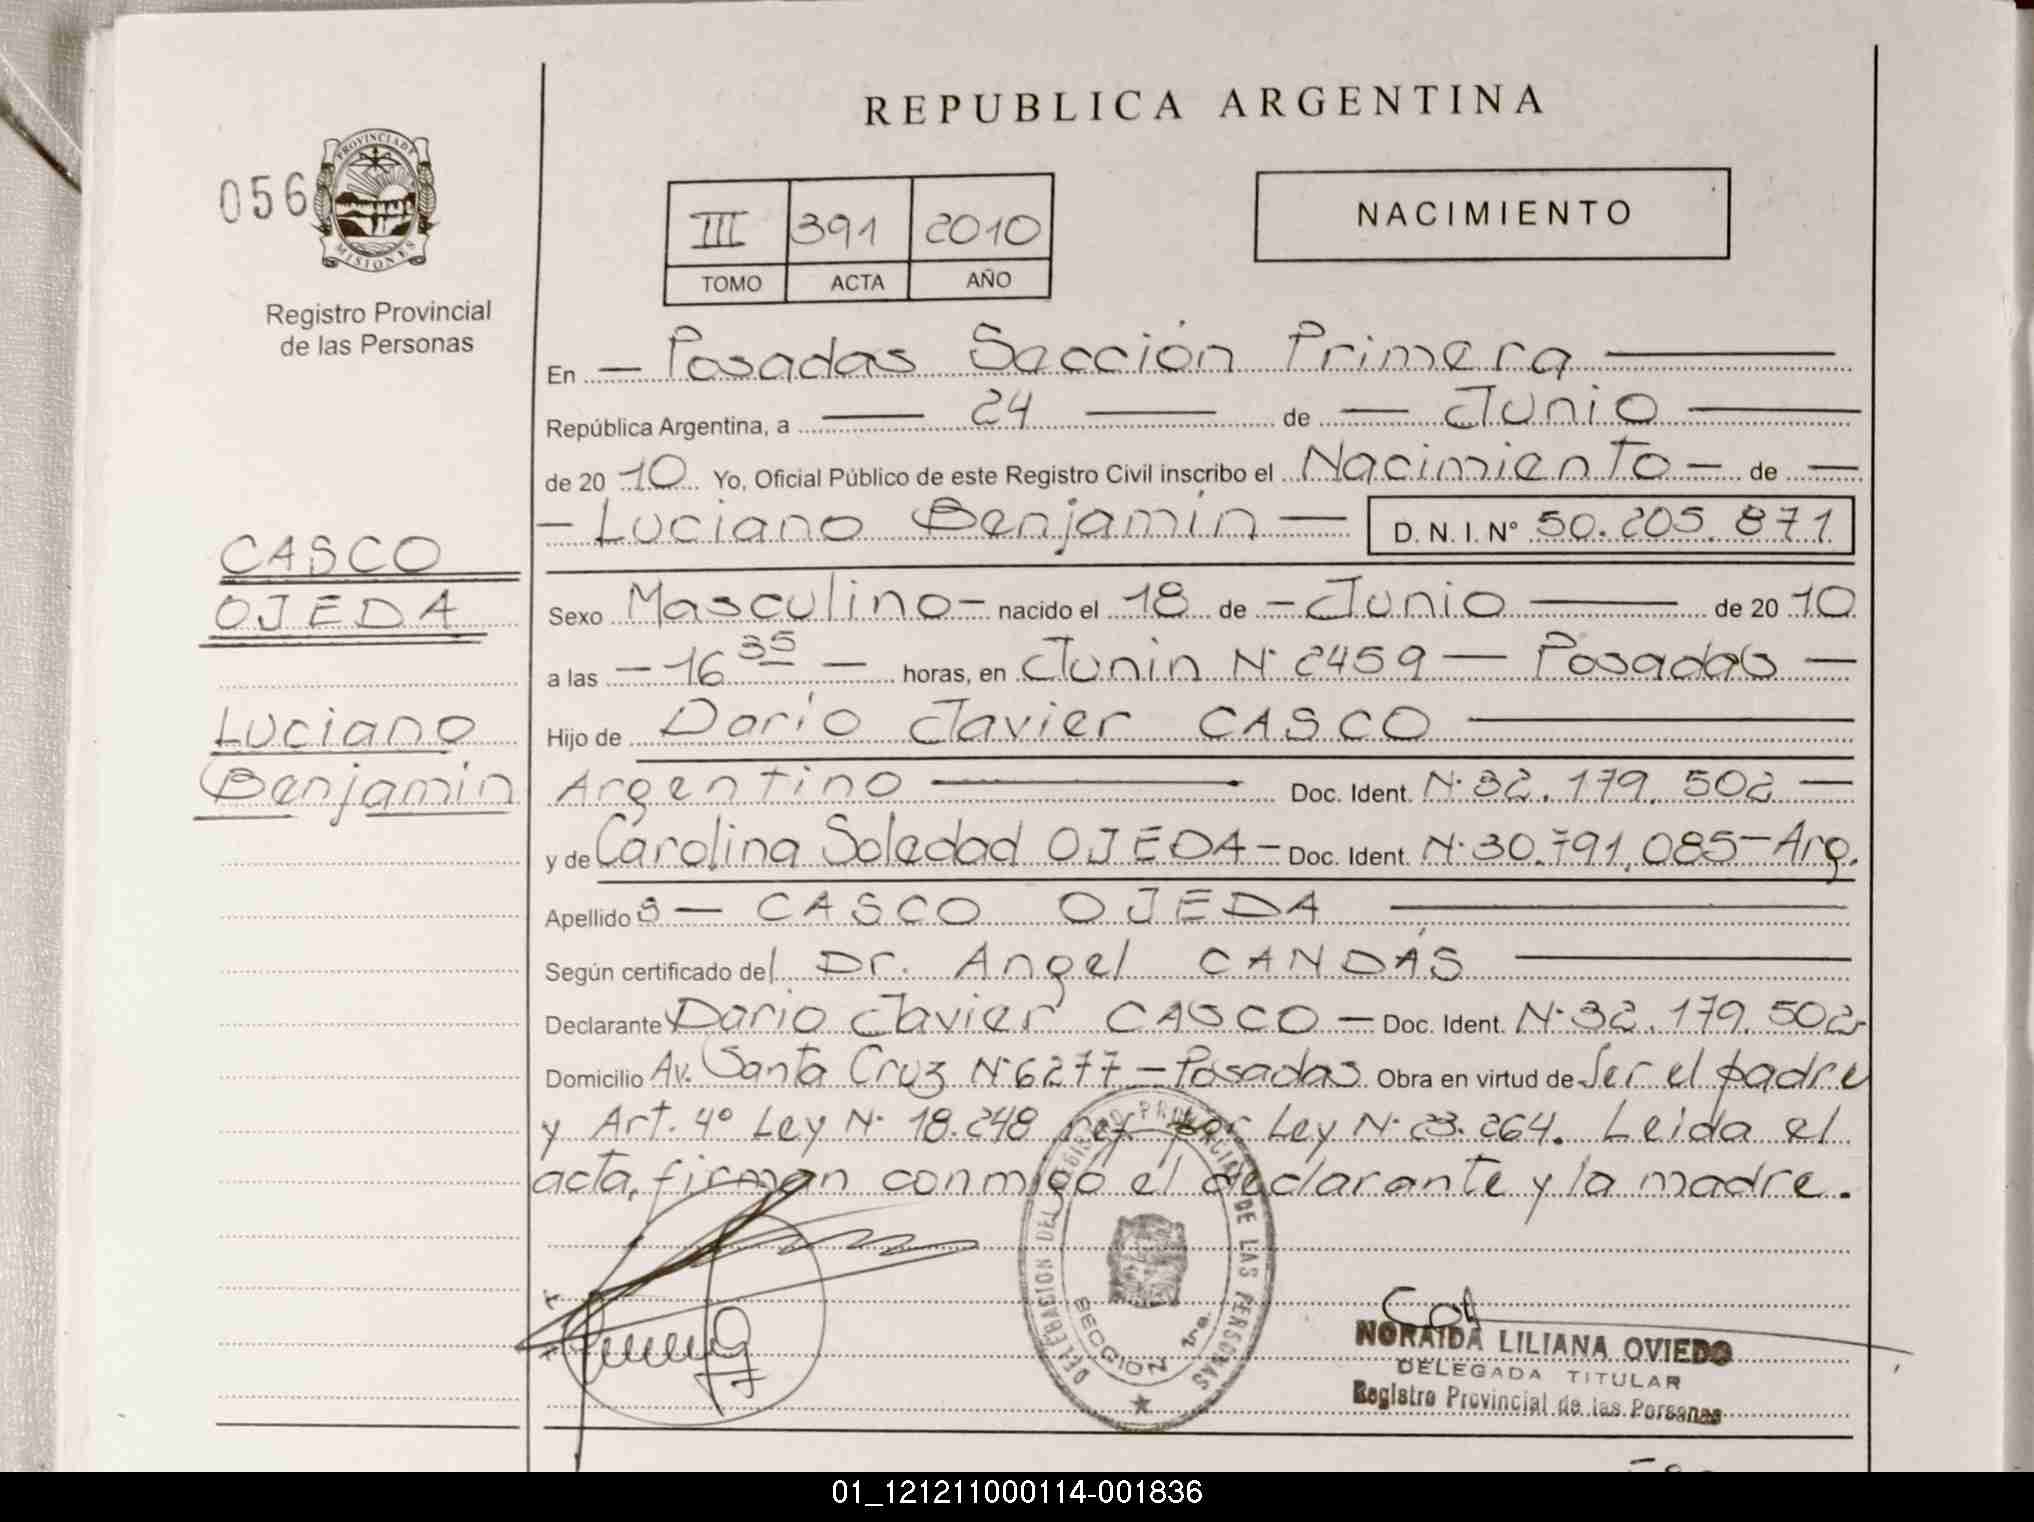 REPUBLICA ARGENTINA
056
PROVINCIA DE
MISIONES
Registro Provincial
de las Personas
III 391 2010
TOMO ACTA AÑO
NACIMIENTO
En — Posadas Sección Primera —
República Argentina, a — 24 — de — Junio —
de 20 10 Yo, Oficial Público de este Registro Civil inscribo el Nacimiento — de —
— Luciano Benjamín — D. N. I. N° 50.205.871
CASCO
OJEDA
Luciano
Benjamín
Sexo Masculino — nacido el 18 de — Junio — de 20 10
a las — 16 35 — horas, en Junin N° 2459 — Posadas —
Hijo de Darío Javier CASCO —
Argentino — Doc. Ident. N° 32.179.502 —
y de Carolina Soledad OJEDA — Doc. Ident. N° 30.791.085 — Arg.
Apellido s — CASCO OJEDA —
Según certificado del Dr. Angel CANDÁS —
Declarante Darío Javier CASCO — Doc. Ident. N° 32.179.502-
Domicilio Av. Santa Cruz N° 6277 — Posadas. Obra en virtud de Ser el padre
y Art. 4° Ley N° 18.248 ref por Ley N° 23.264. Leida el
acta, firman conmigo el declarante y la madre.
DELEGACION DEL REGISTRO PROVINCIAL DE LAS PERSONAS
SECCION 1ra.
NORAIDA LILIANA OVIEDO
DELEGADA TITULAR
Registro Provincial de las Personas
01_121211000114-001836